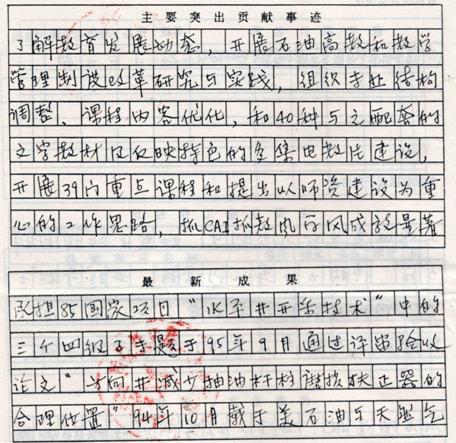 主要突出贡献事迹
了解教育发展动态，开展石油高教和教学
管理制度改革研究与实践，组织专业结构
调整、课程内容优化，和40种与之配套的
文字教材及反映特色的全集电教片建设，
开展39门重点课程和提出以师资建设为重
心的工作思路，抓CAI抓教风学风成效显著
最新成果
承担85国家项目“水平井开采技术”中的
三个四级子专题于95年9月通过评审验收
论文“方向井减少抽油杆柱磨损扶正器的
合理位置”94年10月载于美石油与天然气